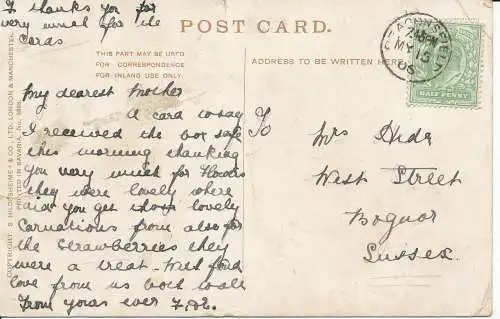 I thanks you for
very much for the
cards
POST CARD.
THIS PART MAY BE USED
FOR CORRESPONDENCE
FOR INLAND USE ONLY.
ADDRESS TO BE WRITTEN HERE
My dearest Mother
A card to say
I received the box safe
this morning thanking
you very much for flowers
they were lovely where
did you get those lovely
carnations from also for
the strawberries they
were a treat with fond
love from us both
From yours ever
To
Mrs Hide
West Street
Bognor
Sussex
COPYRIGHT S. HILDESHEIMER & CO., LTD. LONDON & MANCHESTER.
PRINTED IN BAVARIA, No.
BEACONSFIELD
MY 15
HALF PENNY